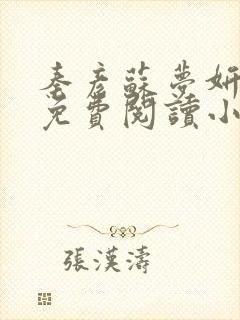 秦彥蘇夢妍
免費閱讀小
張漢濤